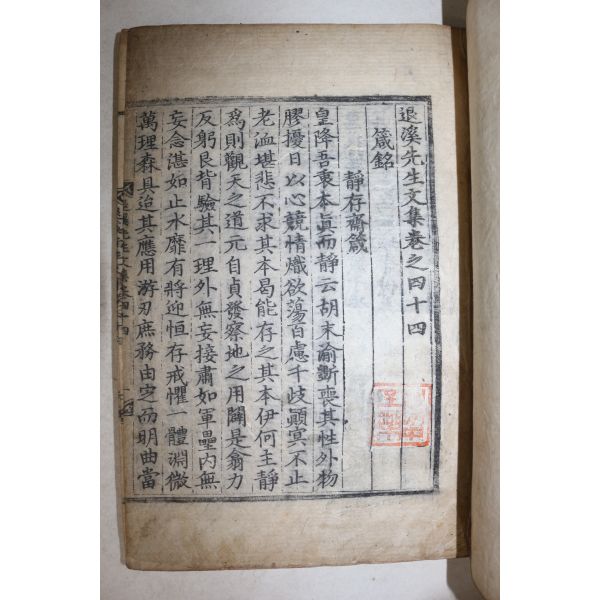 退溪先生文集卷之四十四
箴銘
靜存齋箴
皇降吾衷本眞而靜云胡末渝斲喪其性外物
膠擾日以心競情熾欲蕩百慮千歧顚冥不止
老洫堪悲不求其本曷能存之其本伊何主靜
爲則觀天之道元自貞發察地之用闢是翕力
反躬艮背驗其一理外無妄接肅如軍壘內無
妄念湛如止水靡有將迎恒存戒懼一體淵微
萬理森具迨其應用游刃庶務由定而明曲當